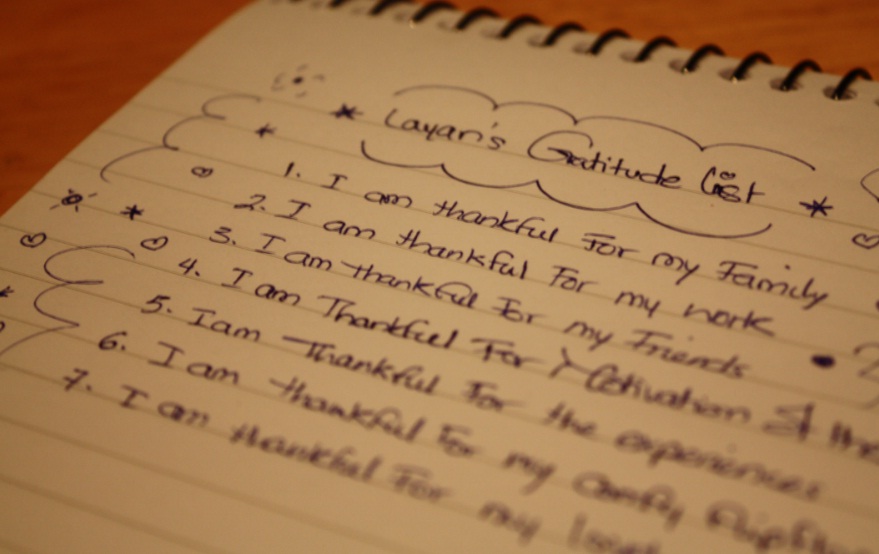 Layan's Gratitude list
1. I am thankful For my Family
2. I am thankful For my work
3. I am thankful For my Friends
4. I am Thankful For Motivation & the
5. I am Thankful For the experiences
6. I am thankful For my comfy flipflops
7. I am thankful For my